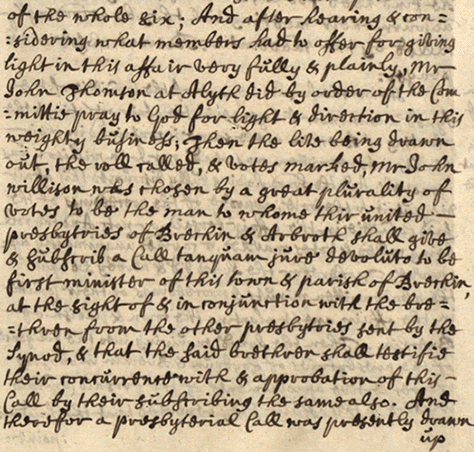 of the whole six; And after hearing & con=
=sidering what members had to offer for giving
light in this affair very fully & plainly, Mr
John Thomson at Alyth did by order of the Com
=mittie pray to God for light & direction in this
weighty business; Then the lite being drawn
out, the roll called, & votes marked, Mr John
willison was chosen by a great plurality of
votes to be the man to whome thir united
presbytries of Brechin & Arbroth shall give
& subscrib a Call tanquam jure devoluto to be
first minister of this town & parish of Brechin
at the sight of & in conjunction with the bre=
=thren from the other presbytries sent by the
Synod, & that the said brethren shall testifie
their concurrence with & approbation of this
Call by their subscribing the same also. And
therefor a presbyterial Call was presently drawn
up